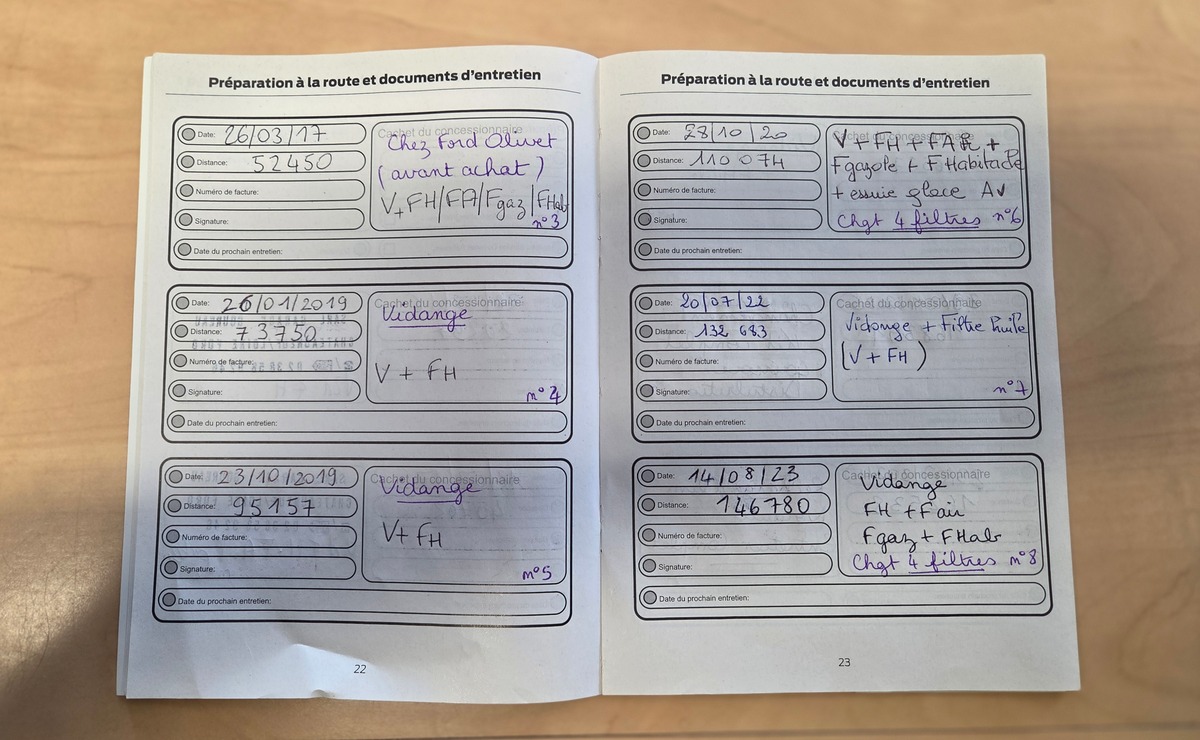 Préparation à la route et documents d'entretien
Date: 26/03/17
Distance: 52450
Numéro de facture:
Signature:
Date du prochain entretien:
Cachet du concessionnaire
Chez Ford Olivet
(avant achat)
V+FH/FA/Fgaz/FHab
n°3
Date: 26/01/2019
Distance: 73750
Numéro de facture:
Signature:
Date du prochain entretien:
Cachet du concessionnaire
Vidange
V + FH
n°4
Date: 23/10/2019
Distance: 95157
Numéro de facture:
Signature:
Date du prochain entretien:
Cachet du concessionnaire
Vidange
V+ FH
n°5
22
Préparation à la route et documents d'entretien
Date: 28/10/20
Distance: 110 074
Numéro de facture:
Signature:
Date du prochain entretien:
Cachet du concessionnaire
V+FH+FAIR +
Fgazole + FHabitacle
+ essuie glace AV
Chgt 4 filtres n°6
Date: 20/07/22
Distance: 132 683
Numéro de facture:
Signature:
Date du prochain entretien:
Cachet du concessionnaire
Vidange + Filtre huile
(V + FH)
n°7
Date: 14/08/23
Distance: 146780
Numéro de facture:
Signature:
Date du prochain entretien:
Cachet du concessionnaire
Vidange
FH + Fair
Fgaz + FHab
Chgt 4 filtres n°8
23